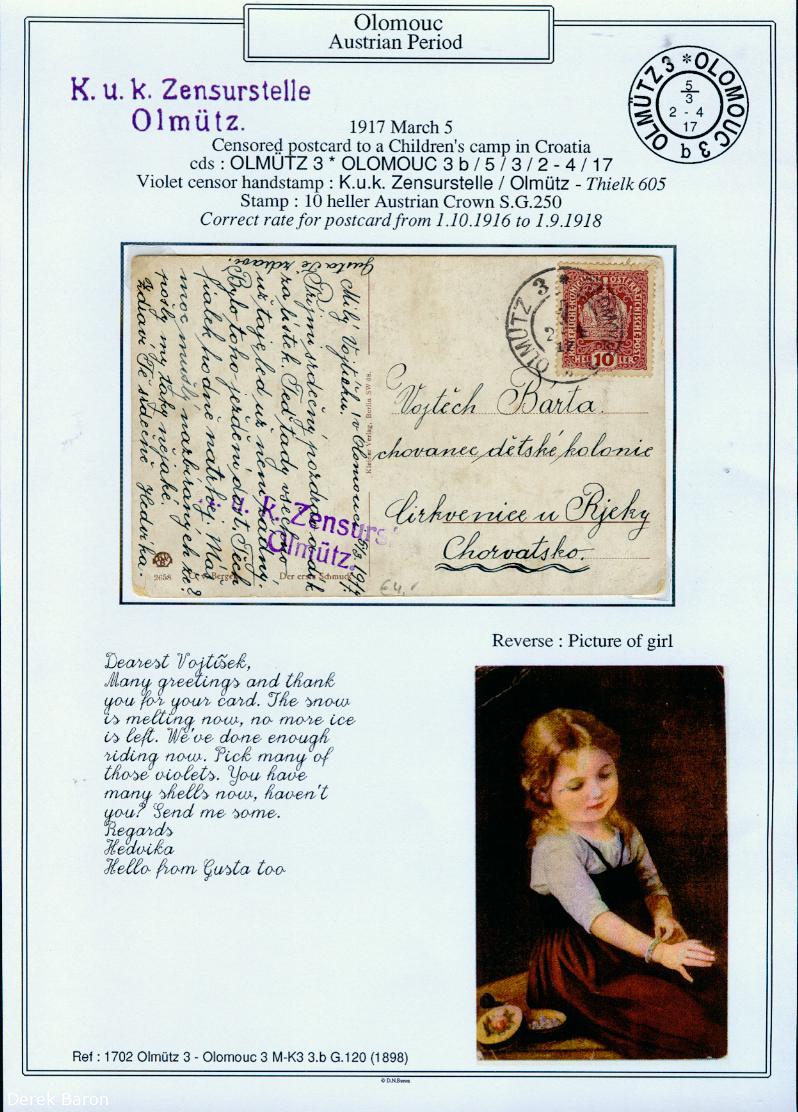 Olomouc
Austrian Period
K. u. k. Zensurstelle
Olmütz.
OLMÜTZ 3 * OLOMOUC 3 b
5
3
2 - 4
17
1917 March 5
Censored postcard to a Children's camp in Croatia
cds : OLMÜTZ 3 * OLOMOUC 3 b / 5 / 3 / 2 - 4 / 17
Violet censor handstamp : K.u.k. Zensurstelle / Olmütz - Thielk 605
Stamp : 10 heller Austrian Crown S.G.250
Correct rate for postcard from 1.10.1916 to 1.9.1918
Milý Vojtíšku. V Olomouci 5/3 1917.
Přijmi srdečný pozdrav a dík
za lístek. Teď tady všechno
už taje, led už není žádný.
Bylo toho ježdění dost. Těch
fialek hodně natrhej. Máš
moc mušlí nazbíraných že?
pošly my taky nějaké.
Zdraví Tě srdečně Hedvika.
Gusta Tě zdraví.
K. u. k. Zensurs
Olmütz.
2658
Berger
Der erste Schmuck
Verlag, Berlin SW 68.
OLMÜTZ 3 *
10
HEL LER
Vojtěch Bárta.
chovanec dětské kolonie
Cirkvenice u Rjeky
Chorvatsko.
€4.
Reverse : Picture of girl
Dearest Vojtíšek,
Many greetings and thank
you for your card. The snow
is melting now, no more ice
is left. We've done enough
riding now. Pick many of
those violets. You have
many shells now, haven't
you? Send me some.
Regards
Hedvika
Hello from Gusta too
Ref : 1702 Olmütz 3 - Olomouc 3 M-K3 3.b G.120 (1898)
© D.N.Baron
Derek Baron